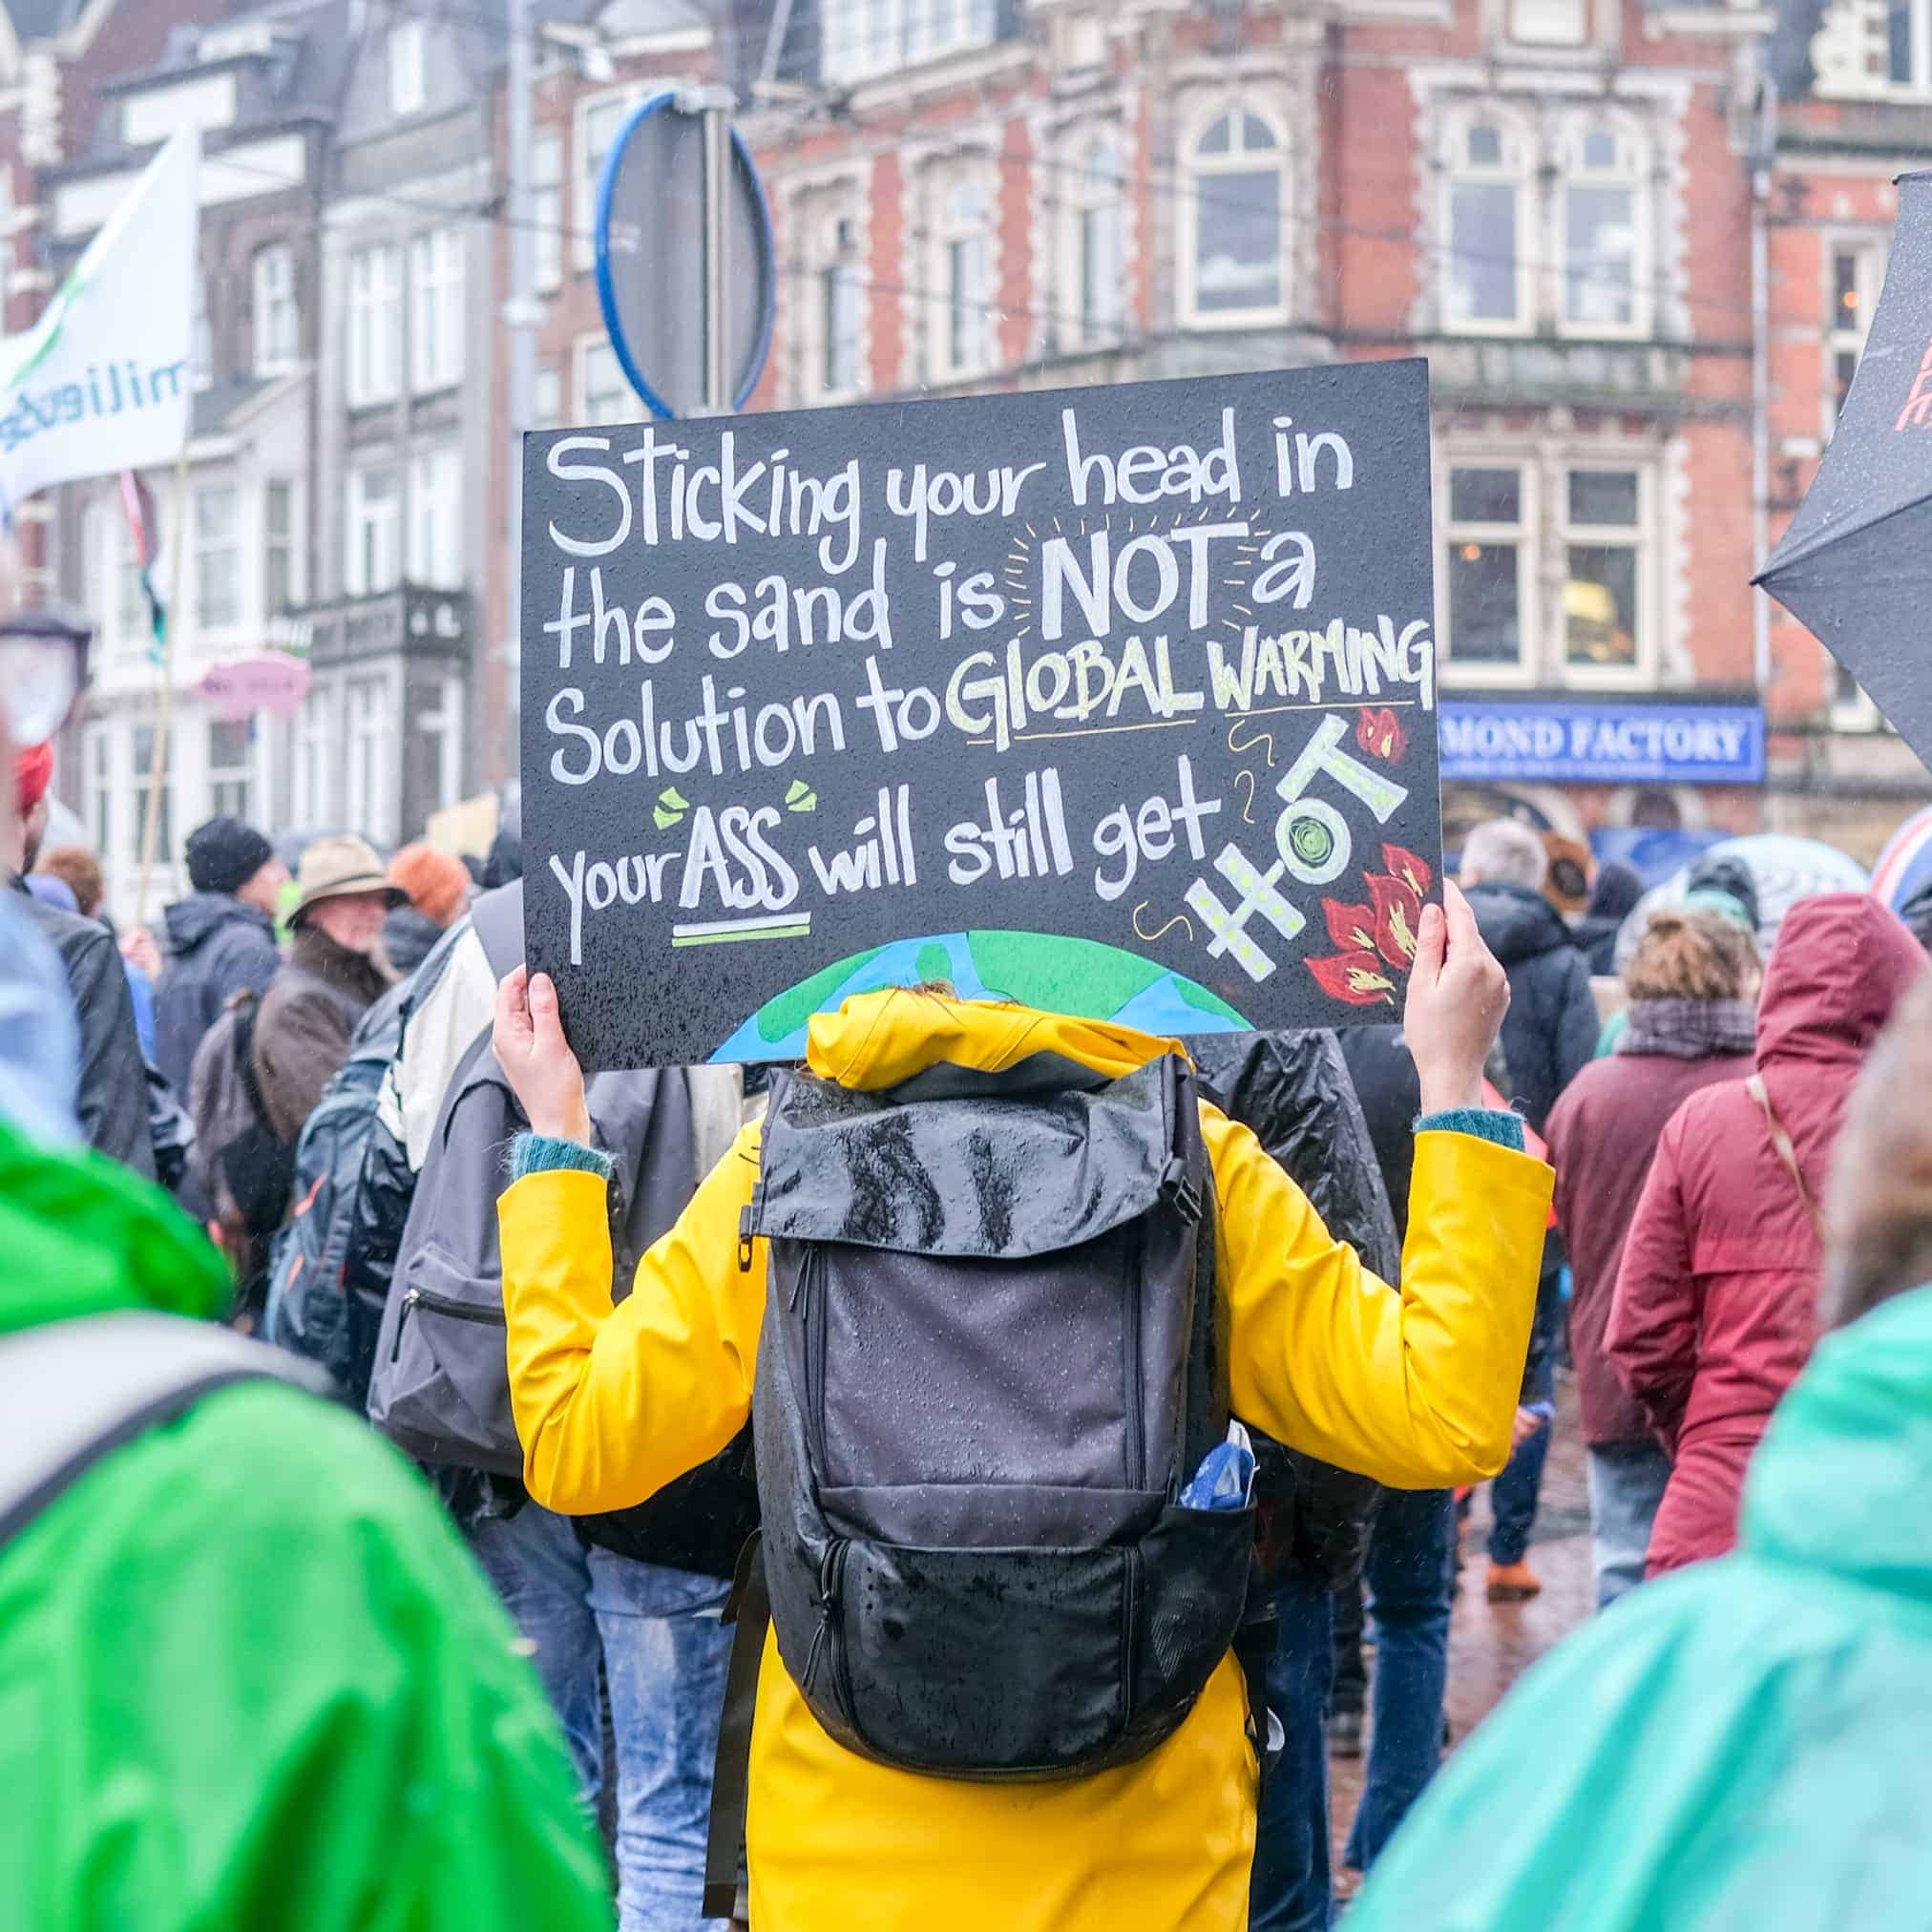 Sticking your head in
the sand is NOT a
Solution to GLOBAL WARMING
your "ASS" will still get HOT
MOND FACTORY